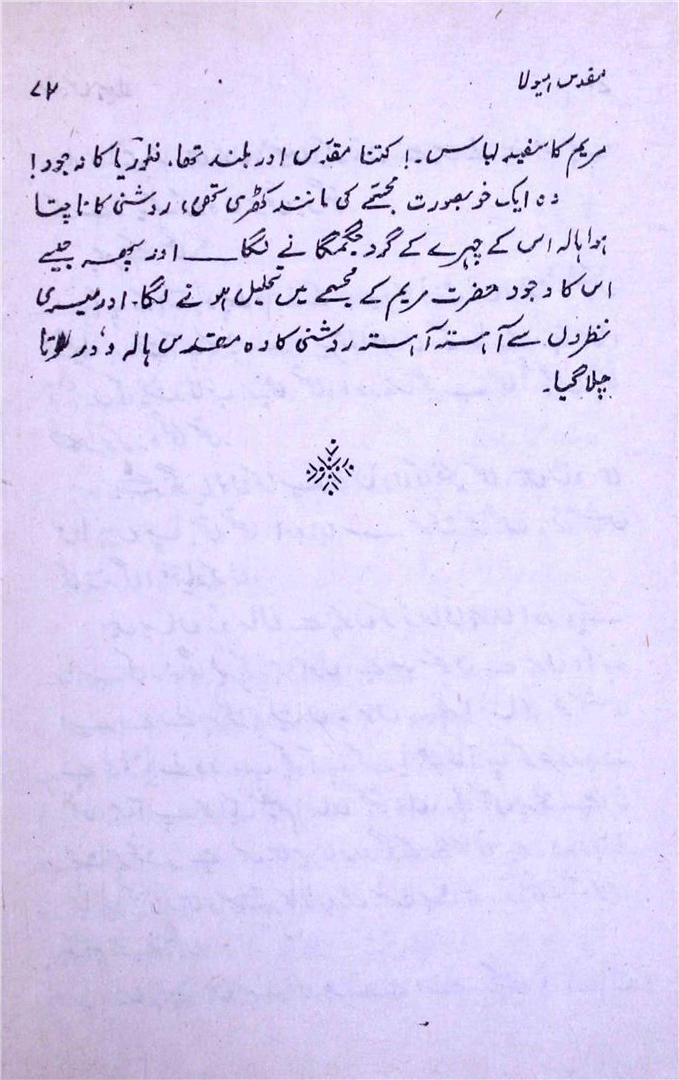 مقدس ہیولا
۷۲
مریم کا سفید لباس۔! کتنا مقدّس اور بلند تھا۔ فلوریا کا وجود!
وہ ایک خوبصورت مجسّمے کی مانند کھڑی تھی، روشنی کا ناچتا
ہوا ہالہ اس کے چہرے کے گرد جگمگانے لگا ــــــ اور پھر جیسے
اس کا وجود حضرت مریم کے مجسمے میں تحلیل ہونے لگا۔ اور میری
نظروں سے آہستہ آہستہ روشنی کا وہ مقدس ہالہ دُور ہوتا
چلا گیا۔